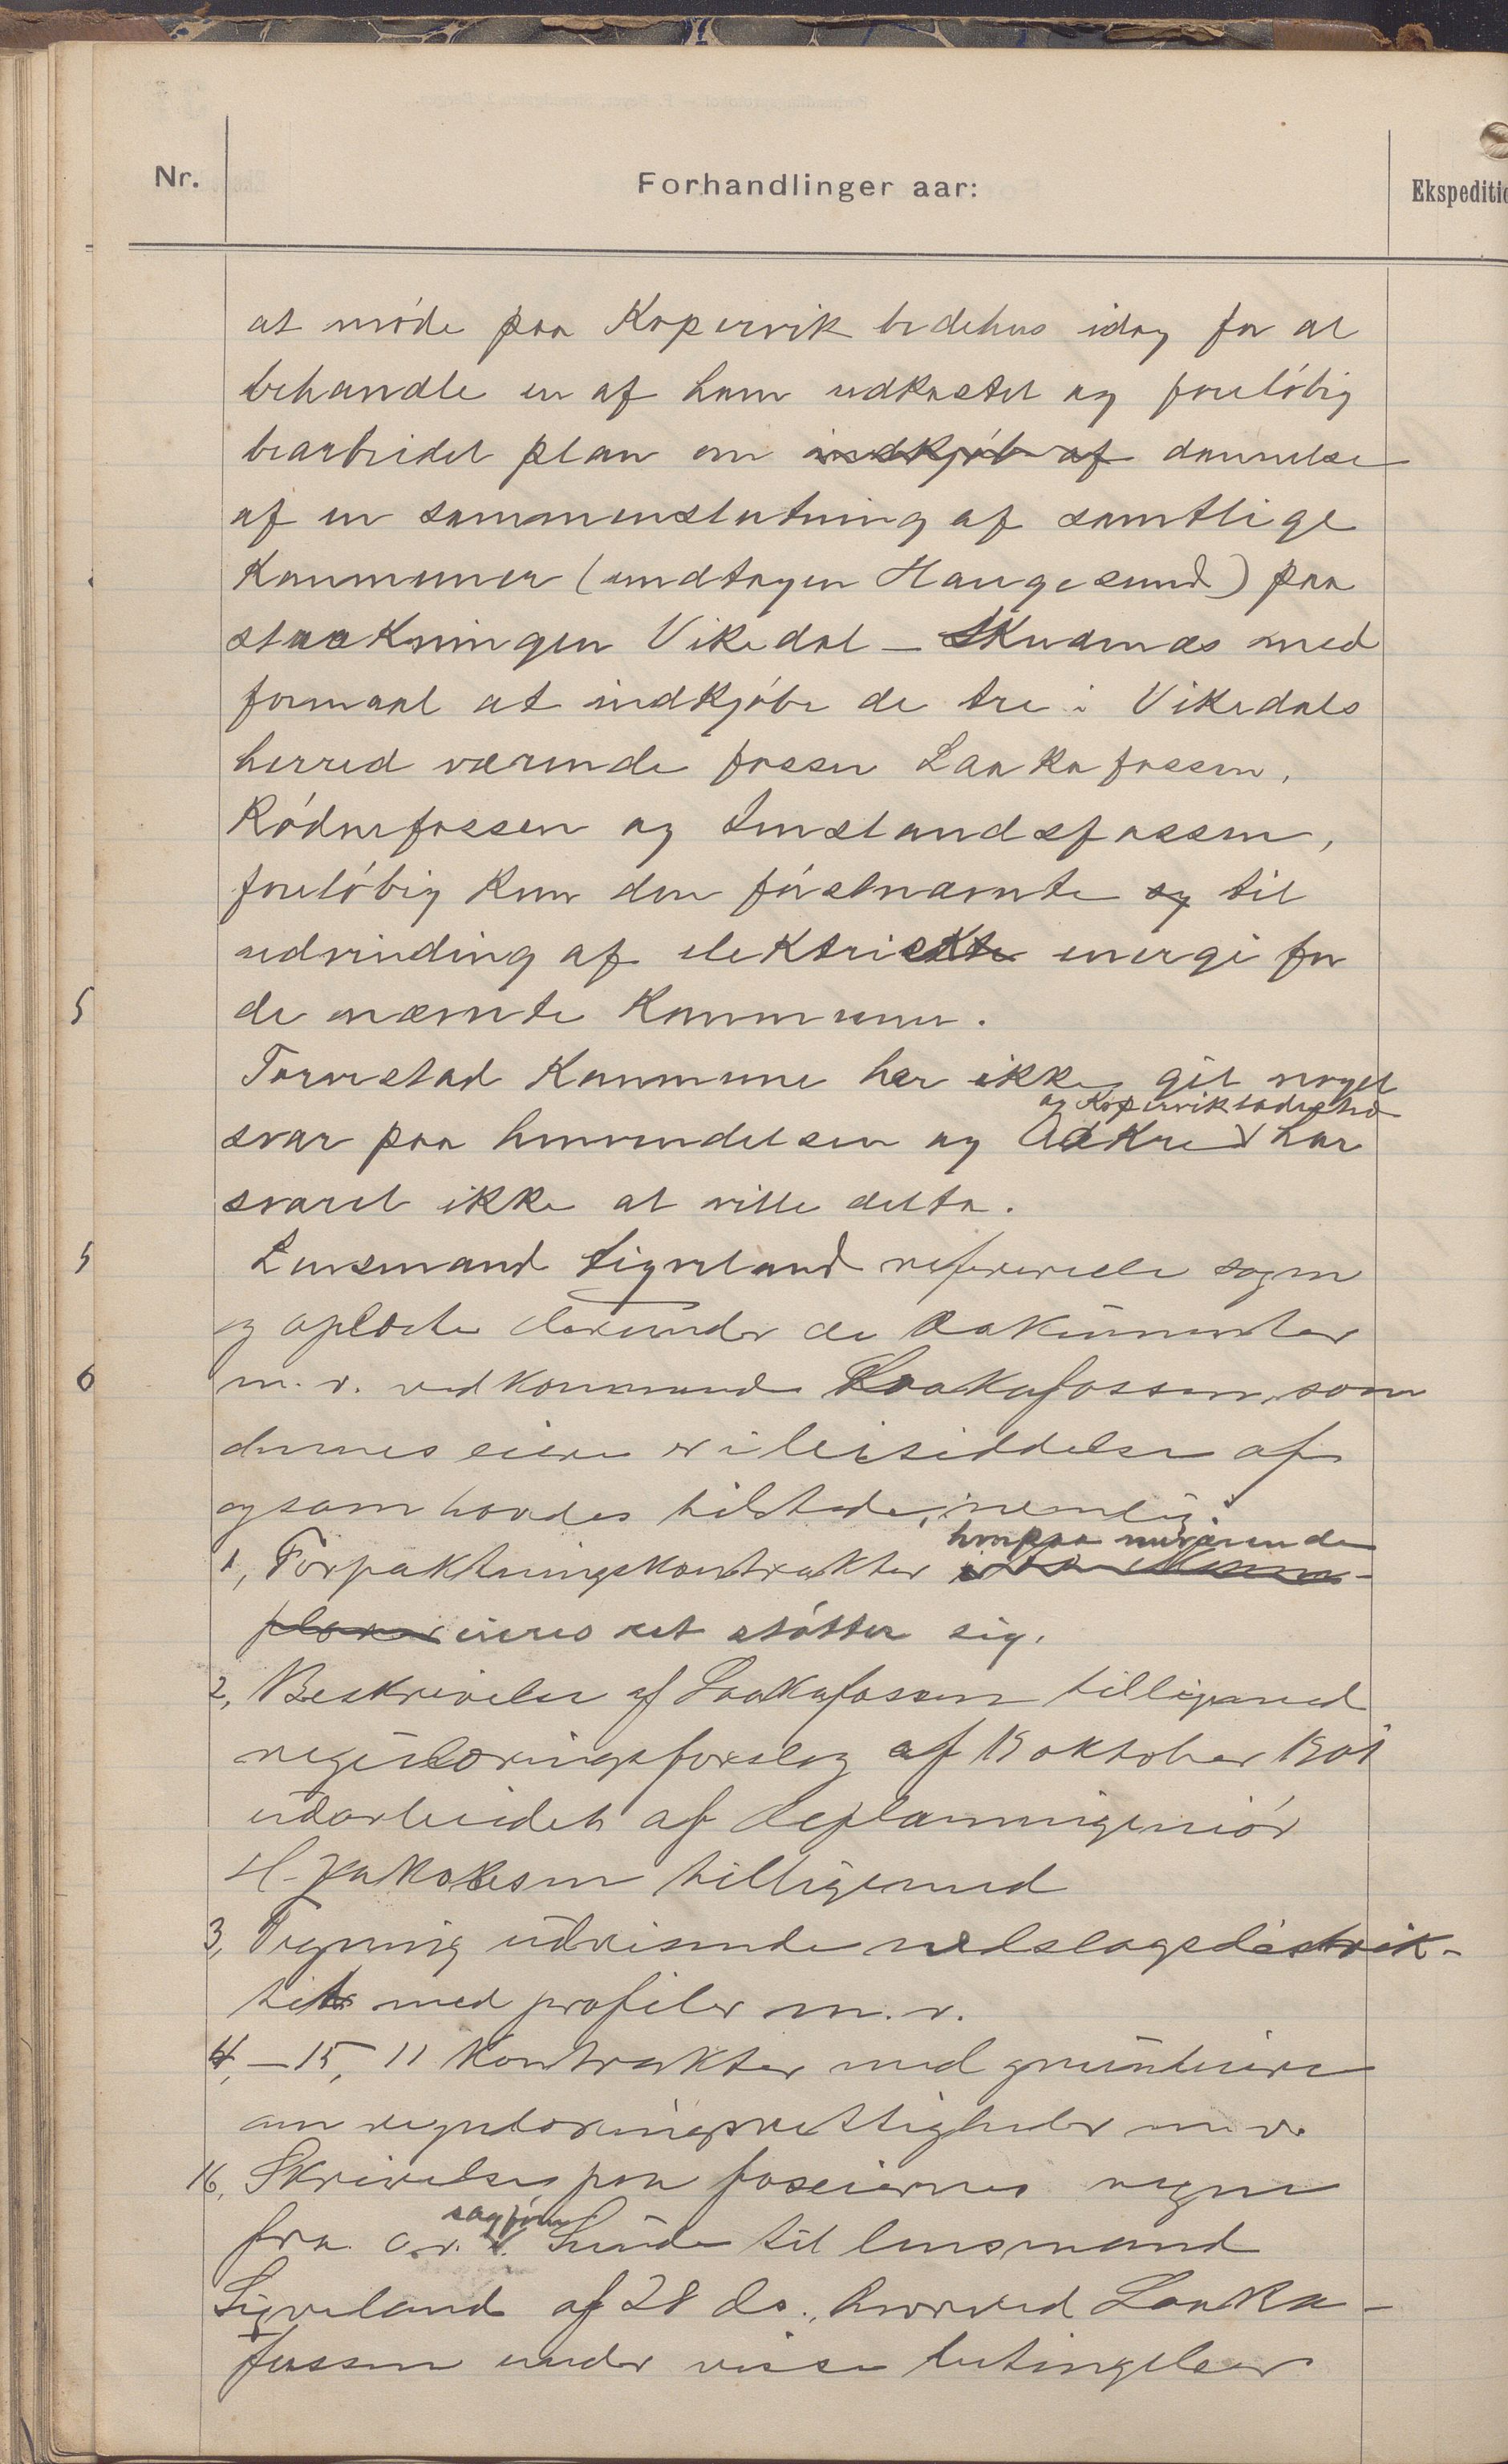 Nr.
Forhandlinger aar:
Ekspeditio
at møde paa Kopervik bedehus idag for at
behandle en af ham udkastet og foreløbig
bearbeidet plan om indkjøb af dannelse
af en sammenslutning af samtlige
Kommuner (undtagen Haugesund) paa
strækningen Vikedal – Skudenæs med
formaal at indkjøbe de tre i Vikedals
herred værende fosser Laakafossen,
Rødnefossen og Imslandsfossen,
foreløbig kun den førstnævnte og til
udvinding af elektriskte energi for
5
de nævnte Kommuner.
Torvestad Kommune har ikke git noget
og Kopervik ladested
svar paa henvendelsen og Aakre har
svaret ikke at ville delta.
5
Lensmand Sigveland refererede sagen
og oplæste derunder de dokumenter
6
m. v. vedkommende Laakafossen, som
dennes eiere er i besiddelse af
og som havdes tilstede, nemlig:
hvorpaa nuværende
1, Forpaktningskontrakter
eieres ret støtter sig.
2, Beskrivelse af Laakafossen tilligemed
reguleringsforslag af 19 oktober 1901
udarbeidet af
H. Jakobsen tilligemed
3, Tegning udvisende nedslagsdistrik-
tet med profiler m. v.
4, – 15, 11 Kontrakter med grundeiere
om reguleringsrettigheder m. v.
16, Skrivelse paa fosseiernes vegne
sagfører
fra o.r. Sunde til lensmand
Sigveland af 28 ds., hvorved Laaka-
fossen under visse betingelser